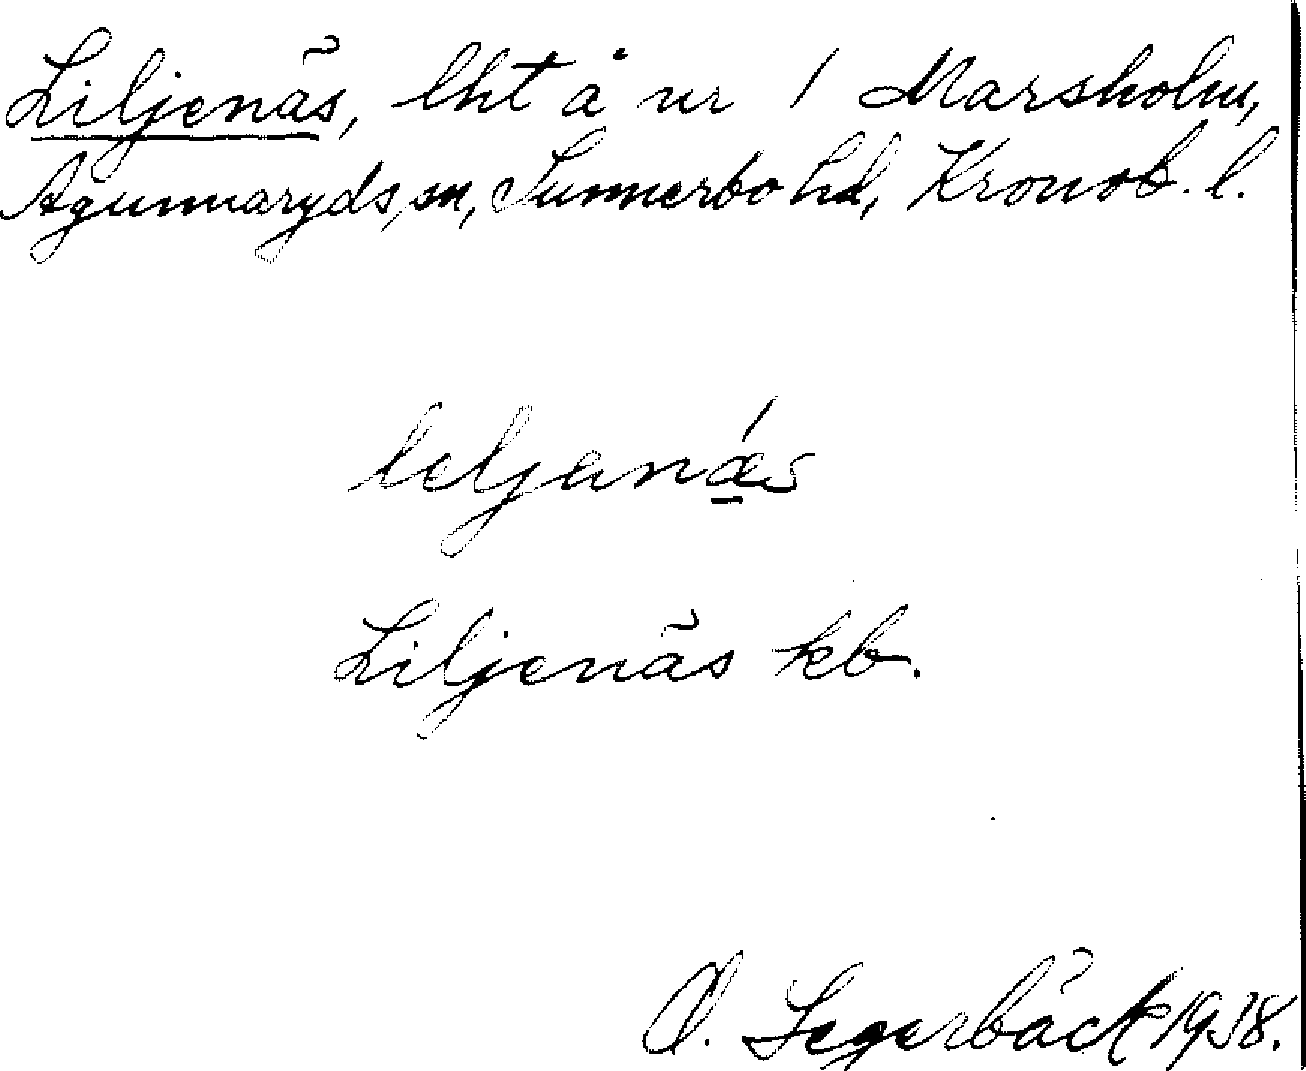 Liljenäs, lht å nr 1 Marsholm,
Agunnaryds sn, Sunnerbo hd, Kronob. l.
leljanǽs
Liljenäs kb.
O. Segerbäck 1938.